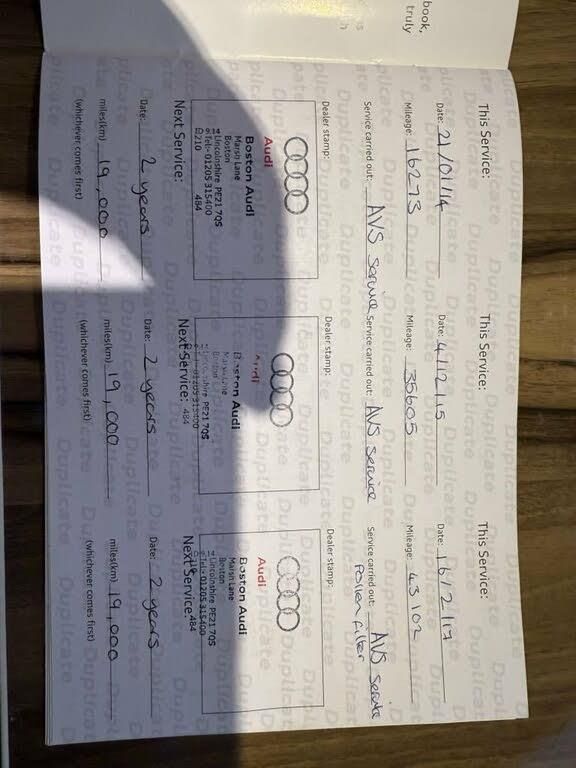 book,
truly
This Service:
Date: 21/01/14
Mileage: 16273
Service carried out: AVS Service
Dealer stamp:
Audi
Boston Audi
Marsh Lane
Boston
Lincolnshire PE21 7QS
Tel: 01205 315400
484
Next Service:
Date: 2 years
miles(km) 19,000
(whichever comes first)
This Service:
Date: 4/12/15
Mileage: 35605
Service carried out: AVS Service
Dealer stamp:
Audi
Boston Audi
Marsh Lane
Boston
Lincolnshire PE21 7QS
01205 315400
Next Service: 484
Date: 2 years
miles(km) 19,000
(whichever comes first)
This Service:
Date: 16/2/17
Mileage: 43102
Service carried out: AVS Service
Pollen filter
Dealer stamp:
Audi
Boston Audi
Marsh Lane
Boston
Lincolnshire PE21 7QS
Tel: 01205 315400
Next Service: 484
Date: 2 years
miles(km) 19,000
(whichever comes first)
Duplicate